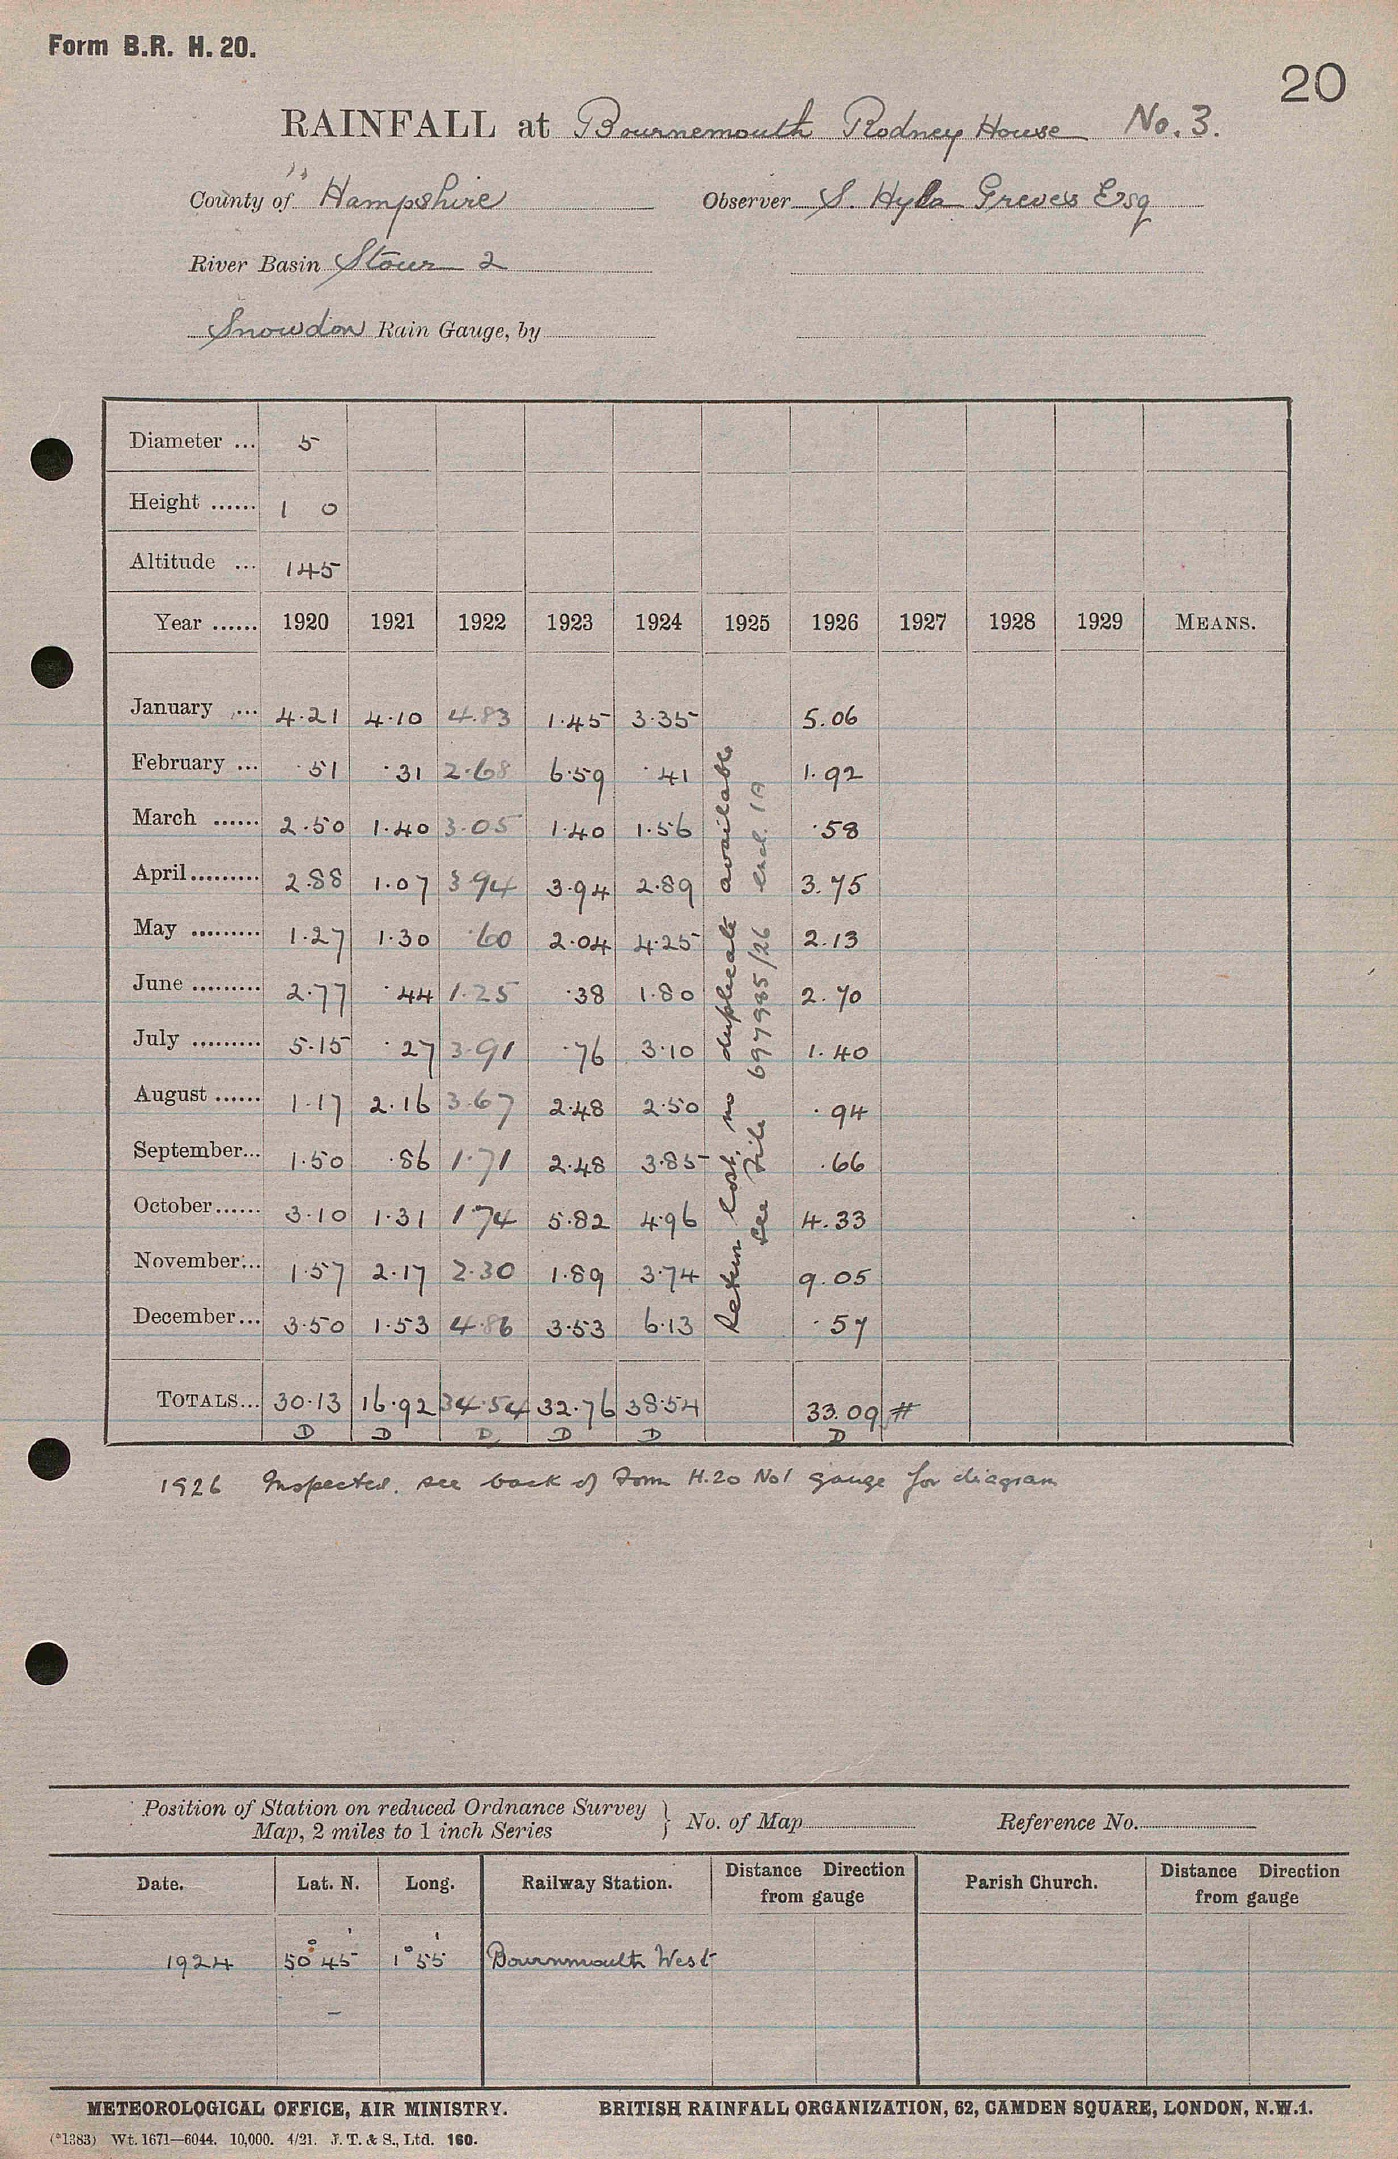 Form B.R. H. 20.
20
RAINFALL at Bournemouth Rodney House No. 3.
County of Hampshire Observer S. Hyla Greves Esq
River Basin Stour 2
Snowdon Rain Gauge, by
Diameter ... 5
Height ...... 1 0
Altitude ... 145
Year ...... 1920 1921 1922 1923 1924 1925 1926 1927 1928 1929 MEANS.
January ... 4.21 4.10 4.83 1.45 3.35 5.06
February ... .51 .31 2.68 6.59 .41 1.92
March ...... 2.50 1.40 3.05 1.40 1.56 .58
April ......... 2.88 1.07 3.94 3.94 2.89 3.75
May ......... 1.27 1.30 .60 2.04 4.25 2.13
June ......... 2.77 .44 1.25 .38 1.80 2.70
July ......... 5.15 .27 3.91 .76 3.10 1.40
August ...... 1.17 2.16 3.67 2.48 2.50 .94
September... 1.50 .86 1.71 2.48 3.85 .66
October...... 3.10 1.31 1.74 5.82 4.96 4.33
November... 1.57 2.17 2.30 1.89 3.74 9.05
December... 3.50 1.53 4.86 3.53 6.13 .57
Return lost, no duplicate available
see File 697985/26 encl. 1A
TOTALS... 30.13 16.92 34.54 32.76 38.54 33.09 #
D D D D D D
1926 Inspected. see back of Form H.20 No1 gauge for diagram
Position of Station on reduced Ordnance Survey
Map, 2 miles to 1 inch Series } No. of Map Reference No.
Date. Lat. N. Long. Railway Station. Distance Direction from gauge Parish Church. Distance Direction from gauge
1924 50° 45' 1° 55' Bournmouth West
METEOROLOGICAL OFFICE, AIR MINISTRY. BRITISH RAINFALL ORGANIZATION, 62, CAMDEN SQUARE, LONDON, N.W.1.
(*1383) Wt. 1671—6044. 10,000. 4/21. J. T. & S., Ltd. 160.